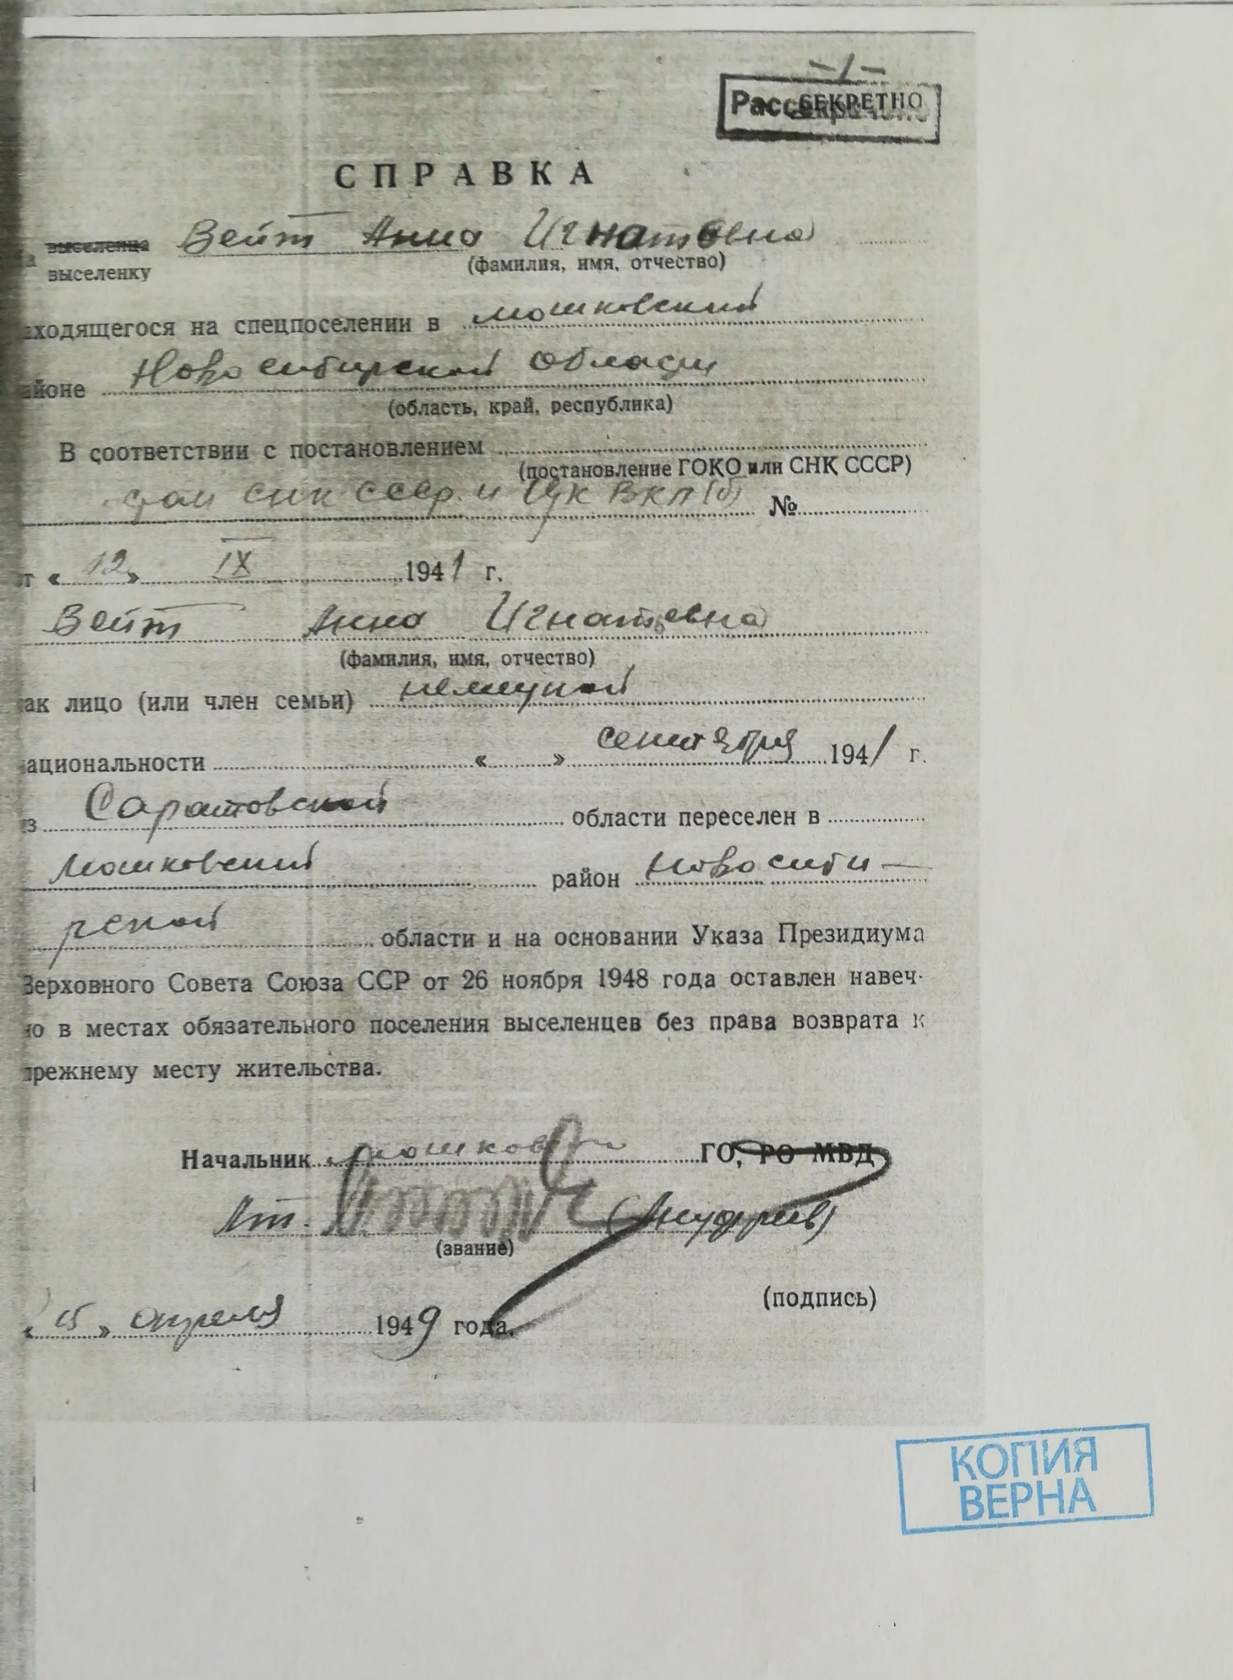 -1-
Рассекречено
СЕКРЕТНО
СПРАВКА
выселенца Вейт Анна Игнатьевна
выселенку (фамилия, имя, отчество)
аходящегося на спецпоселении в Мошковский
айоне Новосибирской области
(область, край, республика)
В соответствии с постановлением
(постановление ГОКО или СНК СССР)
СНК СССР и ЦК ВКП(б) №
от « 12 » IX 1941 г.
Вейт Анна Игнатьевна
(фамилия, имя, отчество)
как лицо (или член семьи) немецкой
ациональности « » сентября 1941 г.
из Саратовской области переселен в
Мошковский район Новосиби-
рской области и на основании Указа Президиума
Верховного Совета Союза ССР от 26 ноября 1948 года оставлен навеч-
но в местах обязательного поселения выселенцев без права возврата к
прежнему месту жительства.
Начальник Мошков ГО, РО МВД
Лт. (Ануфриев)
(звание)
(подпись)
« 15 » апреля 1949 года.
КОПИЯ
ВЕРНА